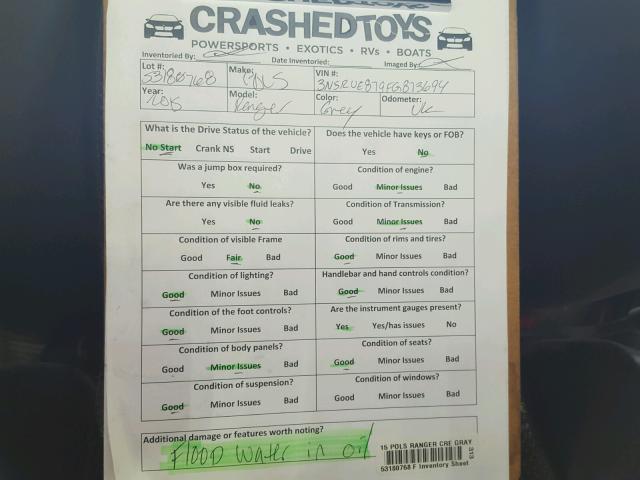 CRASHEDTOYS
POWERSPORTS • EXOTICS • RVs • BOATS
Inventoried By: Date Inventoried: Imaged By:
Lot #: Make: VIN #:
53180768 PLS 3NSRUE879FG873694
Year: Model: Color: Odometer:
2015 Ranger Grey
What is the Drive Status of the vehicle? Does the vehicle have keys or FOB?
No Start Crank NS Start Drive Yes No
Was a jump box required? Condition of engine?
Yes No Good Minor Issues Bad
Are there any visible fluid leaks? Condition of Transmission?
Yes No Good Minor Issues Bad
Condition of visible Frame Condition of rims and tires?
Good Fair Bad Good Minor Issues Bad
Condition of lighting? Handlebar and hand controls condition?
Good Minor Issues Bad Good Minor Issues Bad
Condition of the foot controls? Are the instrument gauges present?
Good Minor Issues Bad Yes Yes/has issues No
Condition of body panels? Condition of seats?
Good Minor Issues Bad Good Minor Issues Bad
Condition of suspension? Condition of windows?
Good Minor Issues Bad Good Minor Issues Bad
Additional damage or features worth noting?
Flood Water in oil
15 POLS RANGER CRE GRAY
313
53180768 F Inventory Sheet